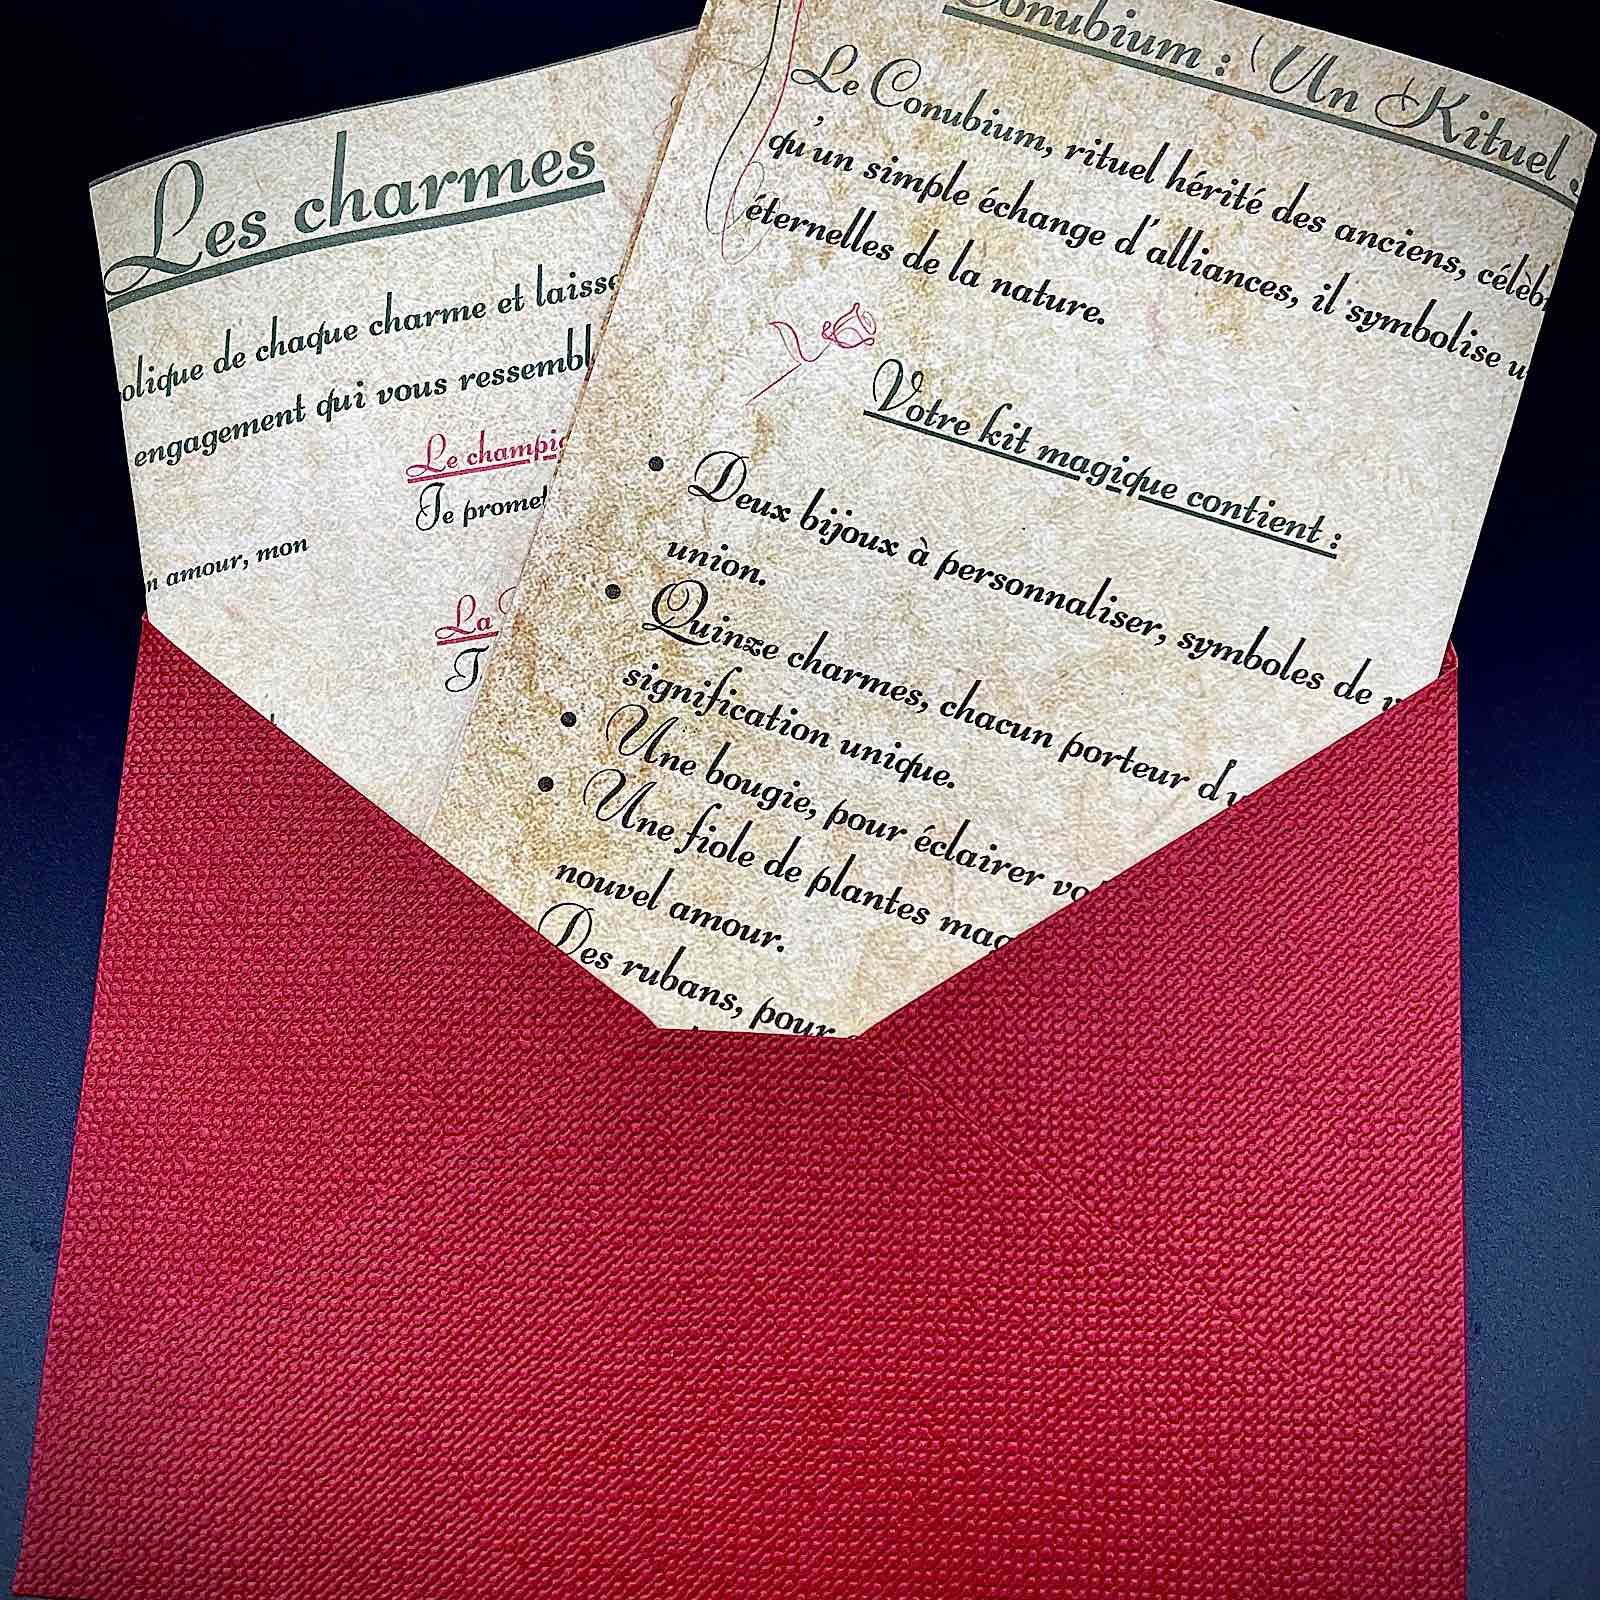 Les charmes
de chaque charme et
engagement qui vous
Le
Je
amour, mon
La
Conubium : Un Rituel
Le Conubium, rituel hérité des anciens,
qu'un simple échange d'alliances, il symbolise
éternelles de la nature.
Votre kit magique contient :
• Deux bijoux à personnaliser, symboles de
union.
• Quinze charmes, chacun porteur
signification unique.
• Une bougie, pour éclairer
• Une fiole de plantes
nouvel amour.
Des rubans, pour